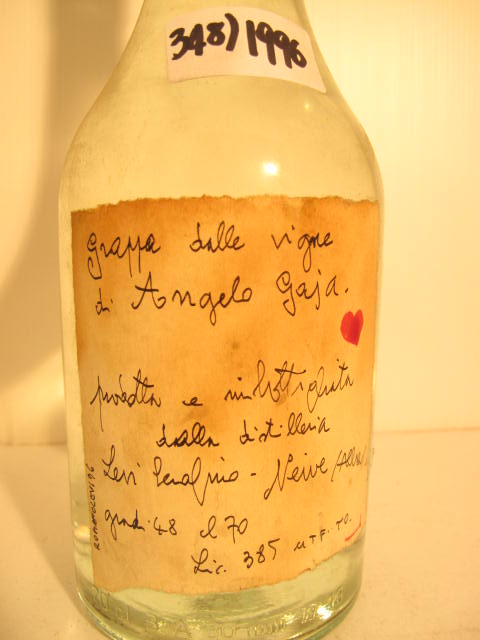 348) 1996
Grappa dalle vigne
di Angelo Gaja.
prodotta e imbottigliata
dalla distilleria
Levi Serafino - Neive
gradi 48 cl 70
Lic. 385 U.T.F. TO.
ROMANOLEVI96